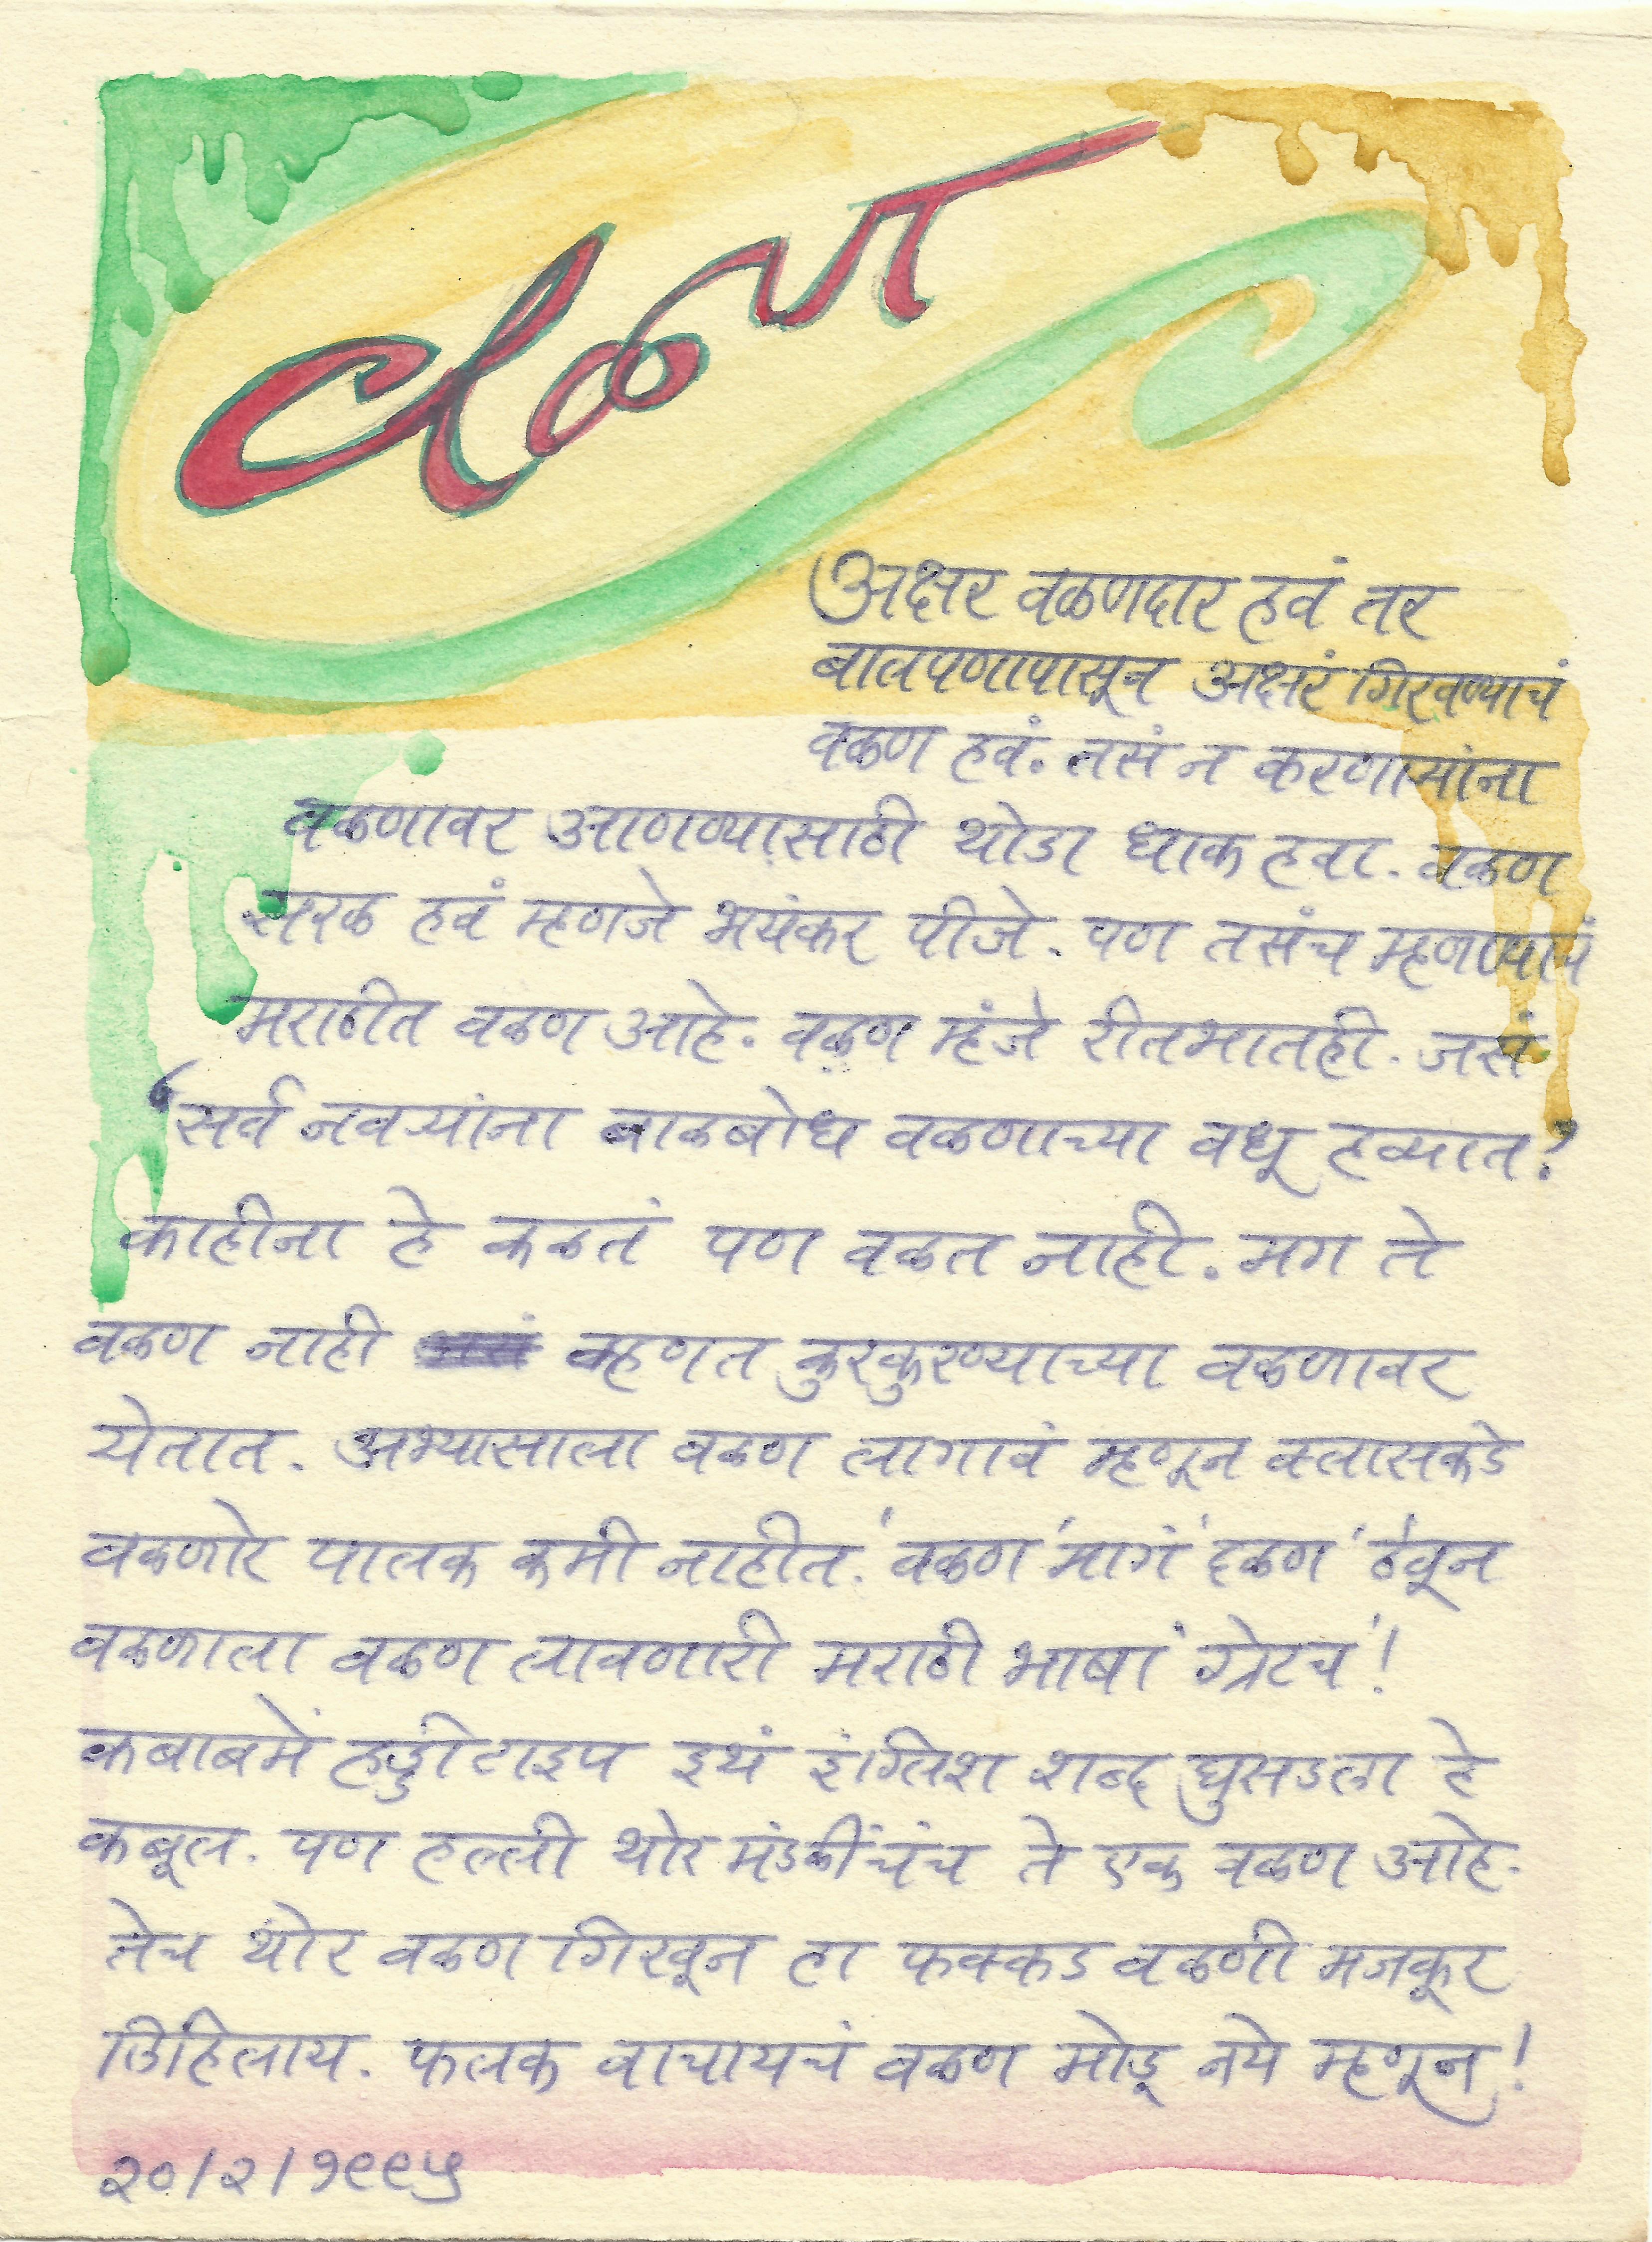 वळण
अक्षर वळणदार हवं तर
बालपणापासून अक्षरं गिरवण्याचं
वळण हवं. तसं न करणाऱ्यांना
वळणावर आणण्यासाठी थोडा धाक हवा. वळण
सरळ हवं म्हणजे भयंकर पीजे. पण तसंच म्हणण्याचं
मराठीत वळण आहे. वळण म्हंजे रीतभातही. जसं
'सर्व नवऱ्यांना बाळबोध वळणाच्या वधू हव्यात?
काहीना हे कळतं पण वळत नाही. मग ते
वळण नाही म्हणत कुरकुरण्याच्या वळणावर
येतात. अभ्यासाला वळण लागावं म्हणून क्लासकडे
वळणारे पालक कमी नाहीत. 'वळण' मागं 'दळण' ठेवून
वळणाला वळण लावणारी मराठी भाषा 'ग्रेटच'!
कबाबमें हड्डी टाइप इथं इंग्लिश शब्द घुसडला हे
कबूल. पण हल्ली थोर मंडळींचंच ते एक वळण आहे.
तेच थोर वळण गिरवून हा फक्कड वळणी मजकूर
लिहिलाय. फलक वाचायचं वळण मोडू नये म्हणून!
२०/२/१९९५